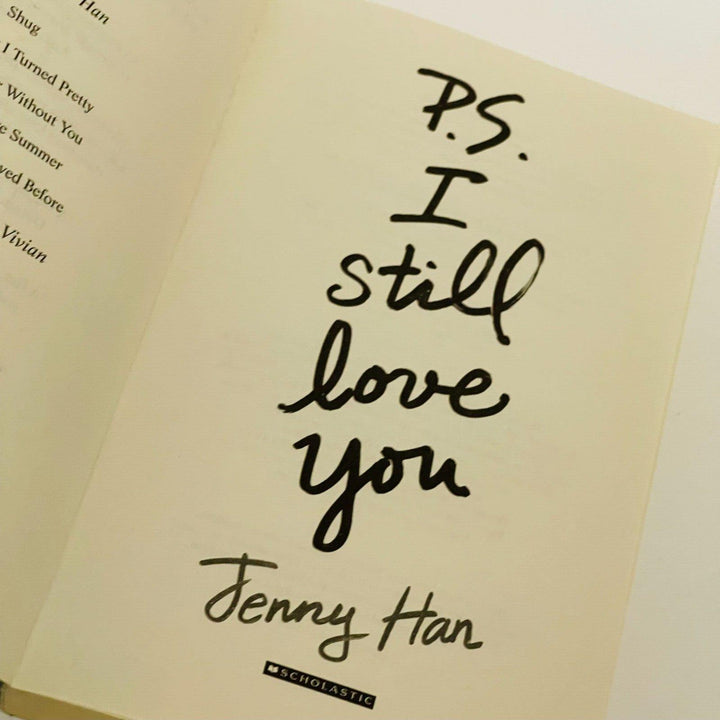 Han
Shug
I Turned Pretty
Without You
Summer
Before
Vivian
P.S.
I
still
love
you
Jenny Han
SCHOLASTIC